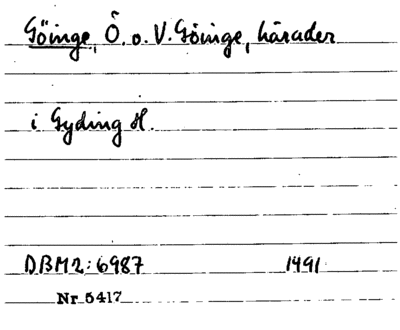 Göinge, Ö. o. V. Göinge, härader
i Gyding H.
DBM2:6987 1491
Nr 5417